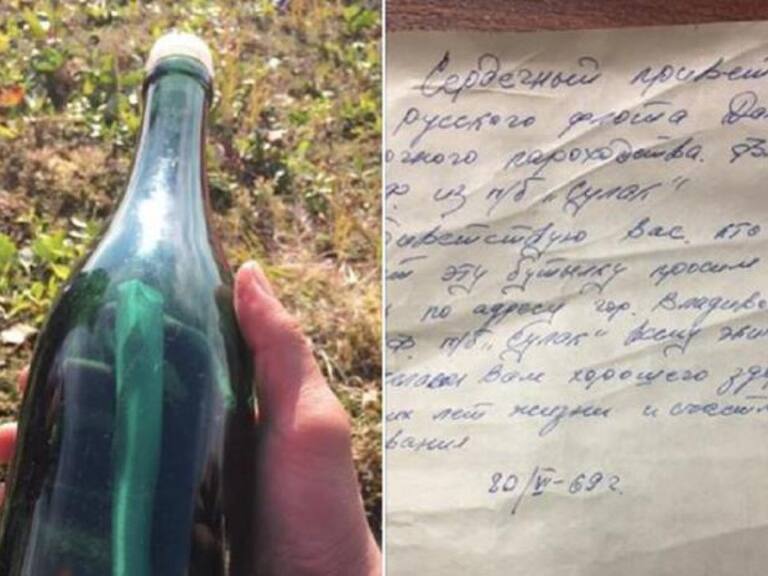 Сердечный привет
русского флота Да
очного пароходства. В
Ф из п/б „Сулак"
иветствую Вас, кто
эту бутылку просим
по адресу гор. Владиво
Ф п/б „Сулак" всему эки
Вам хорошего зд
их лет жизни и счаст
вания
20/VI-69г.